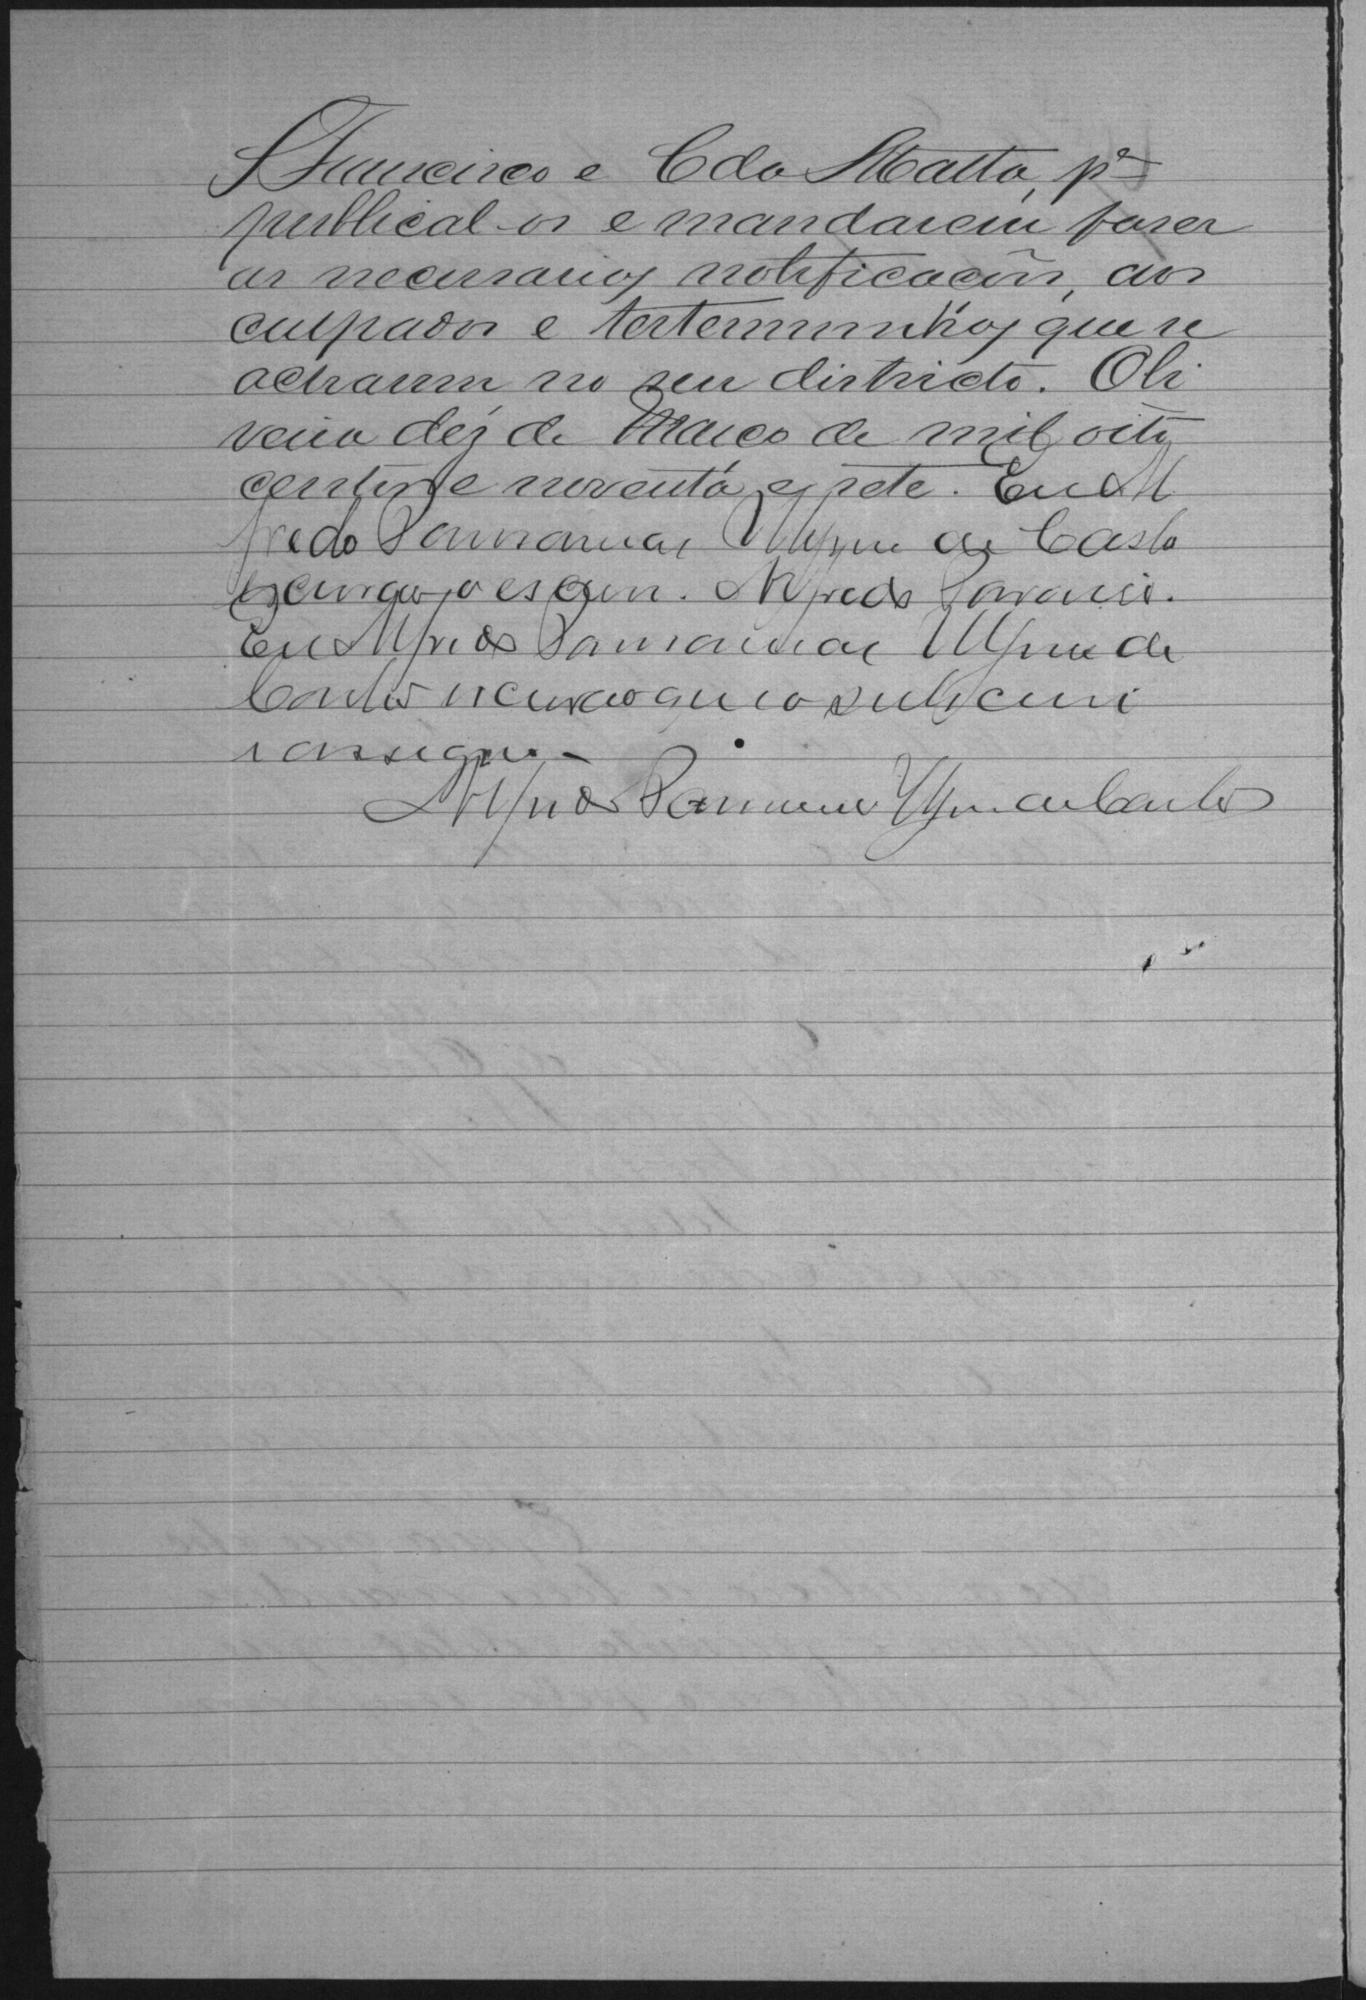 S Francisco e C do Matta, pª
publical-os e mandarem faser
as necessarias notificacões, aos
culpados e testemunhas que se
acharem no seu districto. Oli
veira dez de Março de mil oito
centos e noventa e sete. Eu Al
fredo Paranamar de Castro
escrivão o escrevi. Alfredo
Eu Alfredo Paranamar de
Castro escrivão que o subscrevi
e assigno.
Alfredo de Castro